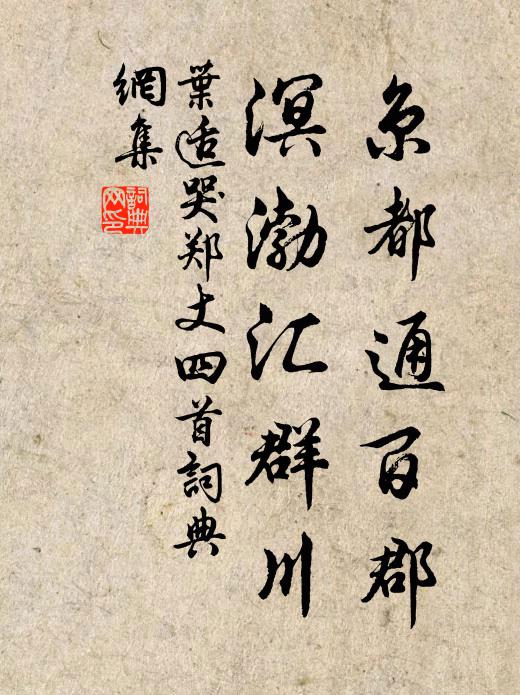 京都通百郡
溟渤汇群川
葉适哭郑丈四首詞典
網集
詞典
网印